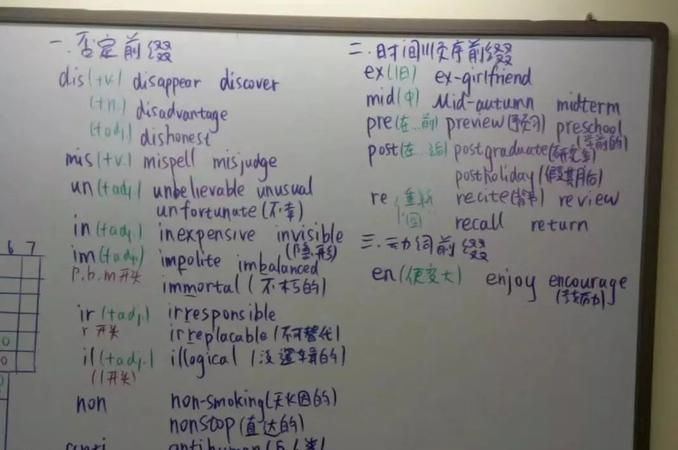 一.否定前缀
dis(+v.) disappear discover
(+n.) disadvantage
(+adj.) dishonest
mis(+v.) mispell misjudge
un(+adj.) unbelievable unusual
unfortunate(不幸)
in(+adj.) inexpensive invisible
(隐形)
im(+adj.) impolite imbalanced
p.b.m开头
immortal(不朽的)
ir(+adj.) irresponsible
r开头 irreplacable(不可替代)
il(+adj.) illogical(没逻辑的)
(l开头)
non non-smoking(无烟的)
nonstop(直达的)
anti antihuman(反人类)
二.时间顺序前缀
ex(旧) ex-girlfriend
mid(中) Mid-autumn midterm
pre(在..前) preview(预习) preschool
(学前的)
post(在..后) postgraduate(研究生)
postholiday(假期后)
re(重新 recite(背) review
回) recall return
三.动词前缀
en(使变大) enjoy encourage
(鼓励)
6 7
0
0